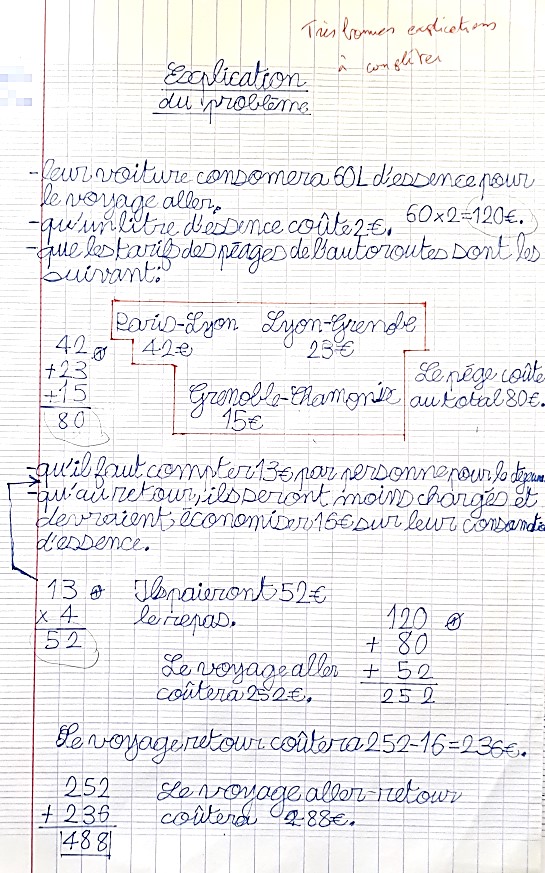 Très bonnes explications
à compléter
Explication
du problème
-leur voiture consomera 60L d'essence pour
le voyage aller.
-qu'un litre d'essence coûte 2€. 60×2=120€.
-que les tarifs des péages de l'autoroutes sont les
suivant:
Paris-Lyon Lyon-Grenoble
42€ 23€
42
+23
+15
80
Grenoble-Chamonix
15€
Le pége coûte
au total 80€.
-qu'il faut compter 13€ par personne pour le
-qu'au retour, ils seront moins chargés et
devraient économiser 16€ sur leur
d'essence.
13
× 4
52
Ils paieront 52€
le repas.
120
+ 80
+ 52
252
Le voyage aller
coûtera 252€.
Le voyage retour coûtera 252-16=236€.
252
+ 236
488
Le voyage aller-retour
coûtera 488€.